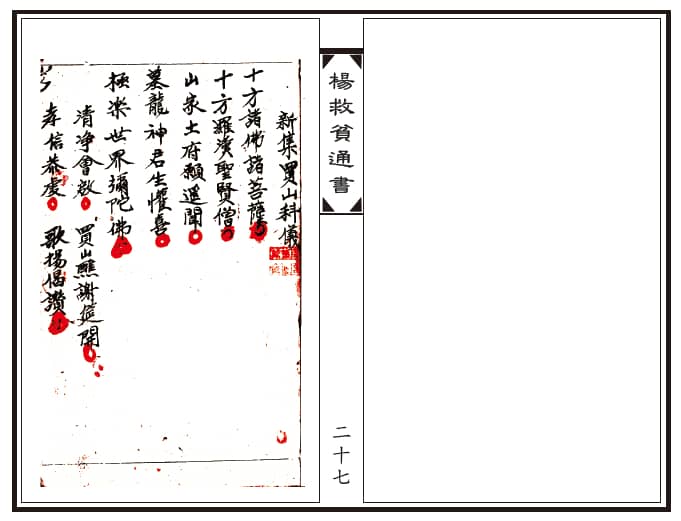 楊救貧通書
二十七
新集買山科儀
十方諸佛諸菩薩
十方羅漢聖賢僧
山家土府願遥聞
墓龍神君生懽喜
極楽世界彌陀佛
清净會啟 買山醮謝筵開
孝信恭虔 歌揚偈讚